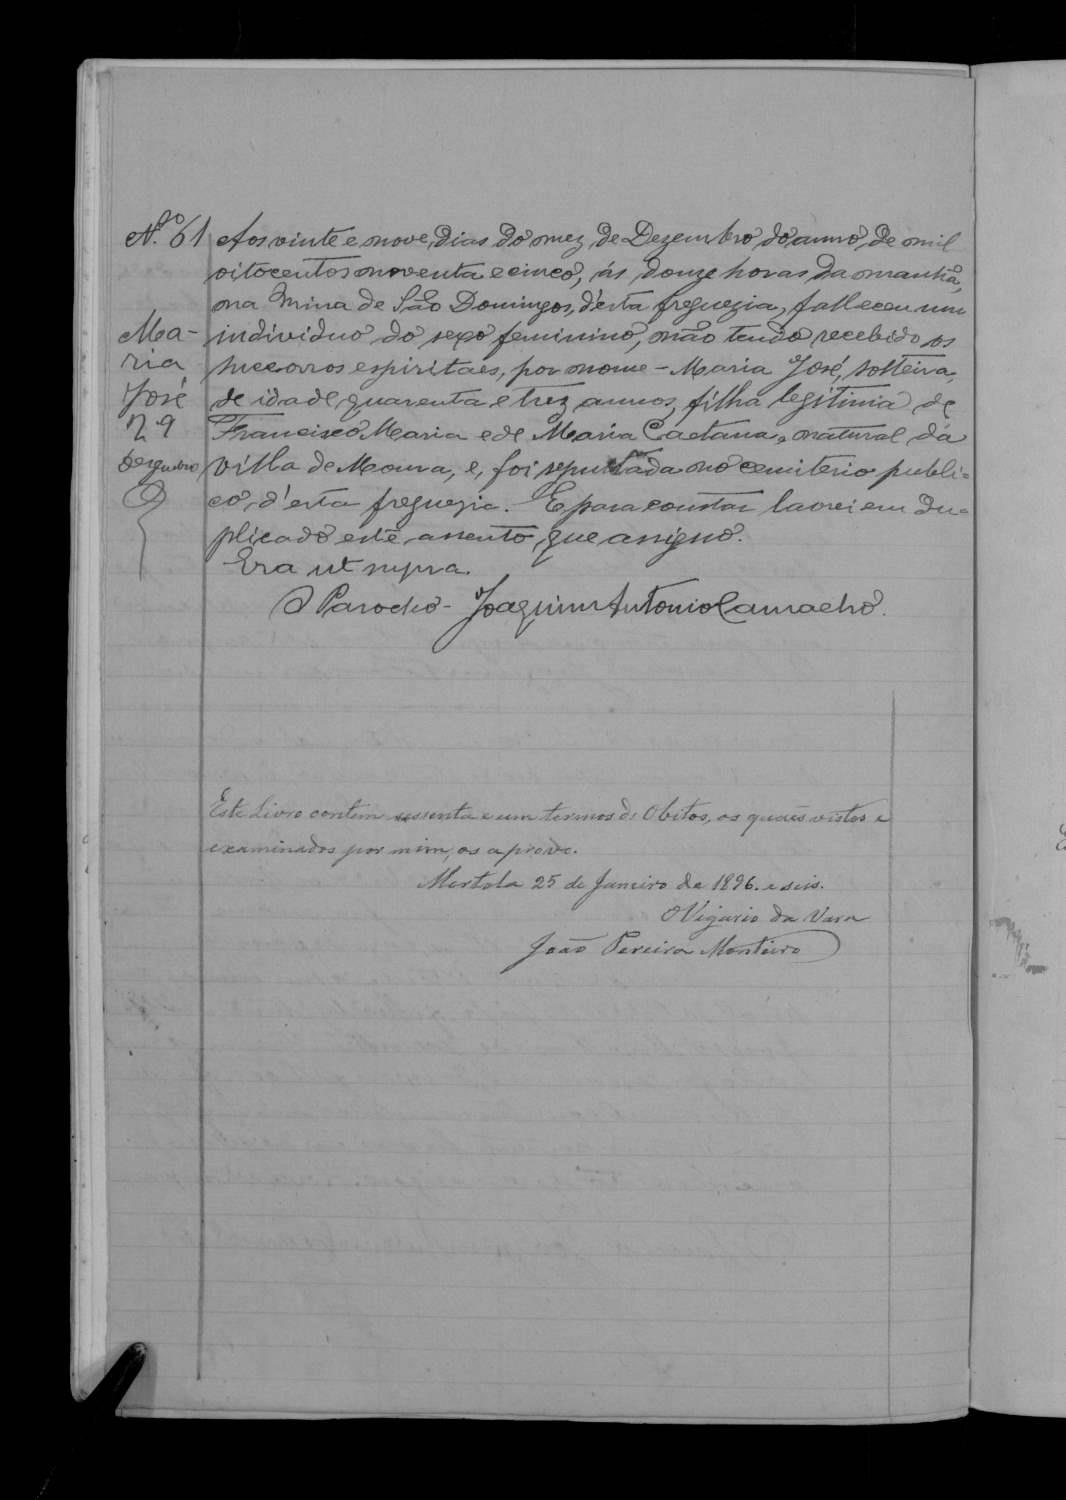 N.º 61
Ma-
ria
José
29
Dezembro
Aos vinte e nove dias do mez de Dezembro do anno de mil
oitocentos noventa e cinco, ás douze horas da manhã,
na Mina de São Domingos, d'esta freguezia, falleceu um
individuo do sexo feminino, não tendo recebido os
succorros espiritaes, por nome - Maria José, solteira,
de idade quarenta e trez annos, filha legitima de
Francisco Maria e de Maria Caetana, natural da
villa de Moura, e, foi sepultada no cemiterio publi-
co, d'esta freguezia. E para constar lavrei em du-
plicado este assento que assigno.
Era ut supra.
O Parocho - Joaquim Antonio Camacho.
Este Livro contem sessenta e um termos de Obitos, os quaes vistos e
examinados por mim, os aprovo.
Mertola 25 de Janeiro de 1896. e seis.
O Vigario da Vara
João Pereira Monteiro